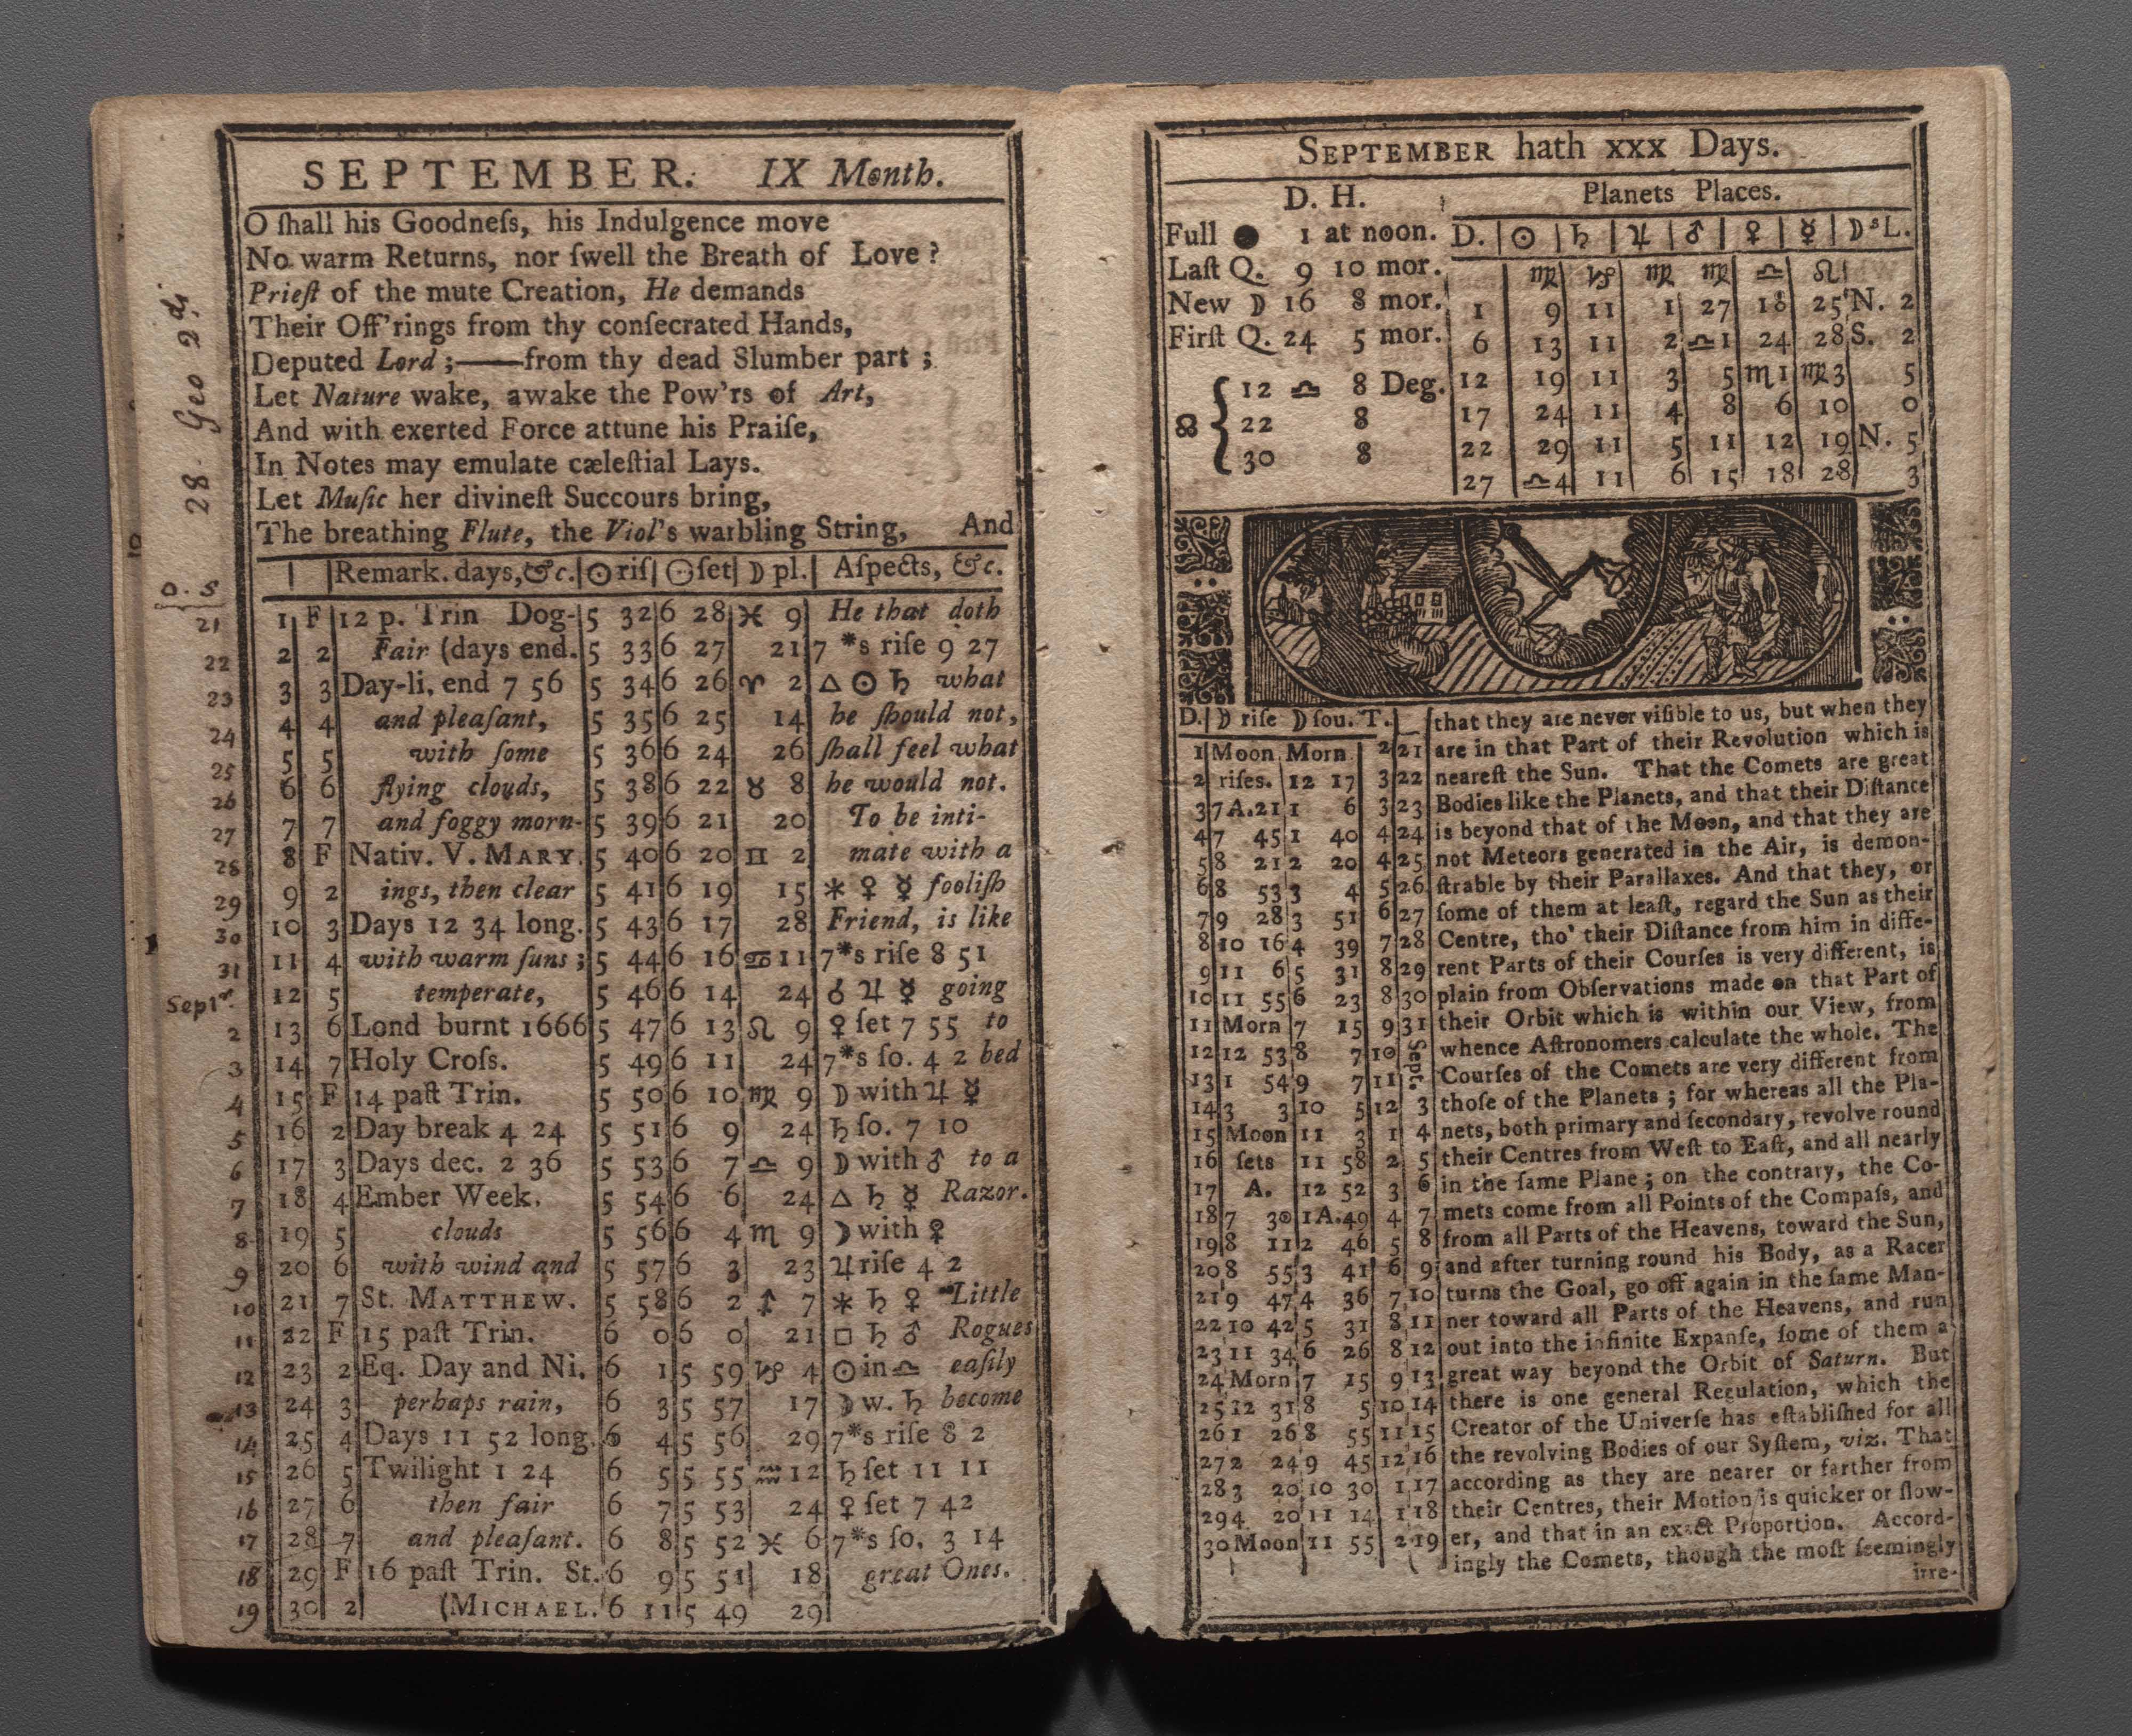 28 Geo 2di
SEPTEMBER. IX Month.
O ſhall his Goodneſs, his Indulgence move
No warm Returns, nor ſwell the Breath of Love?
Prieſt of the mute Creation, He demands
Their Off'rings from thy conſecrated Hands,
Deputed Lord;——from thy dead Slumber part;
Let Nature wake, awake the Pow'rs of Art,
And with exerted Force attune his Praiſe,
In Notes may emulate cæleſtial Lays.
Let Muſic her divineſt Succours bring,
The breathing Flute, the Viol's warbling String, And
| |Remark. days,&c.|☉riſ|☉ſet|☽ pl.| Aſpects, &c.
O. S
21 1 F 12 p. Trin Dog- 5 32 6 28 ♓ 9 He that doth
22 2 2 Fair (days end. 5 33 6 27 21 7 *s riſe 9 27
23 3 3 Day-li. end 7 56 5 34 6 26 ♈ 2 △ ☉ ♄ what
24 4 4 and pleaſant, 5 35 6 25 14 he ſhould not,
25 5 5 with ſome 5 36 6 24 26 ſhall feel what
26 6 6 flying clouds, 5 38 6 22 ♉ 8 he would not.
27 7 7 and foggy morn- 5 39 6 21 20 To be inti-
28 8 F Nativ. V. MARY. 5 40 6 20 ♊ 2 mate with a
29 9 2 ings, then clear 5 41 6 19 15 ⚹ ♀ ☿ fooliſh
30 10 3 Days 12 34 long. 5 43 6 17 28 Friend, is like
31 11 4 with warm ſuns; 5 44 6 16 ♋ 11 7*s riſe 8 51
Septr. 12 5 temperate, 5 46 6 14 24 ☌ ♃ ☿ going
2 13 6 Lond burnt 1666 5 47 6 13 ♌ 9 ♀ ſet 7 55 to
3 14 7 Holy Croſs. 5 49 6 11 24 7*s ſo. 4 2 bed
4 15 F 14 paſt Trin. 5 50 6 10 ♍ 9 ☽ with ♃ ☿
5 16 2 Day break 4 24 5 51 6 9 24 ♄ ſo. 7 10
6 17 3 Days dec. 2 36 5 53 6 7 ♎ 9 ☽ with ♂ to a
7 18 4 Ember Week. 5 54 6 6 24 △ ♄ ☿ Razor.
8 19 5 clouds 5 56 6 4 ♏ 9 ☽ with ♀
9 20 6 with wind and 5 57 6 3 23 ♃ riſe 4 2
10 21 7 St. MATTHEW. 5 58 6 2 ♐ 7 ⚹ ♄ ♀ Little
11 22 F 15 paſt Trin. 6 0 6 0 21 □ ♄ ♂ Rogues
12 23 2 Eq. Day and Ni. 6 1 5 59 ♑ 4 ☉ in ♎ eaſily
13 24 3 perhaps rain, 6 3 5 57 17 ☽ w. ♄ become
14 25 4 Days 11 52 long. 6 4 5 56 29 7*s riſe 8 2
15 26 5 Twilight 1 24 6 5 5 55 ♒ 12 ♄ ſet 11 11
16 27 6 then fair 6 7 5 53 24 ♀ ſet 7 42
17 28 7 and pleaſant. 6 8 5 52 ♓ 6 7*s ſo. 3 14
18 29 F 16 paſt Trin. St. 6 9 5 51 18 great Ones.
19 30 2 (MICHAEL. 6 11 5 49 29
SEPTEMBER hath XXX Days.
D. H.
Full ● 1 at noon.
Laſt Q. 9 10 mor.
New ☽ 16 8 mor.
Firſt Q. 24 5 mor.
☊ { 12 ♎ 8 Deg.
22 8
30 8
Planets Places.
D. | ☉ | ♄ | ♃ | ♂ | ♀ | ☿ | ☽sL.
♍ ♑ ♍ ♍ ♎ ♌
1 9 11 1 27 18 25 N. 2
6 13 11 2 ♎1 24 28 S. 2
12 19 11 3 5 ♏1 ♍3 5
17 24 11 4 8 6 10 0
22 29 11 5 11 12 19 N. 5
27 ♎4 11 6 15 18 28 3
D.|☽ riſe ☽ ſou. T.
1 Moon Morn 2 21
2 riſes. 12 17 3 22
3 7A.21 1 6 3 23
4 7 45 1 40 4 24
5 8 21 2 20 4 25
6 8 53 3 4 5 26
7 9 28 3 51 6 27
8 10 16 4 39 7 28
9 11 6 5 31 8 29
10 11 55 6 23 8 30
11 Morn 7 15 9 31
12 12 53 8 7 10 Sept.
13 1 54 9 7 11
14 3 3 10 5 12 3
15 Moon 11 3 1 4
16 ſets 11 58 2 5
17 A. 12 52 3 6
18 7 30 1A.49 4 7
19 8 11 2 46 5 8
20 8 55 3 41 6 9
21 9 47 4 36 7 10
22 10 42 5 31 8 11
23 11 34 6 26 8 12
24 Morn 7 15 9 13
25 12 31 8 5 10 14
26 1 26 8 55 11 15
27 2 24 9 45 12 16
28 3 20 10 30 1 17
29 4 20 11 14 1 18
30 Moon 11 55 2 19
that they are never viſible to us, but when they
are in that Part of their Revolution which is
neareſt the Sun. That the Comets are great
Bodies like the Planets, and that their Diſtance
is beyond that of the Moon, and that they are
not Meteors generated in the Air, is demon-
ſtrable by their Parallaxes. And that they, or
ſome of them at leaſt, regard the Sun as their
Centre, tho' their Diſtance from him in diffe-
rent Parts of their Courſes is very different, is
plain from Obſervations made on that Part of
their Orbit which is within our View, from
whence Aſtronomers calculate the whole. The
Courſes of the Comets are very different from
thoſe of the Planets; for whereas all the Pla-
nets, both primary and ſecondary, revolve round
their Centres from Weſt to Eaſt, and all nearly
in the ſame Plane; on the contrary, the Co-
mets come from all Points of the Compaſs, and
from all Parts of the Heavens, toward the Sun,
and after turning round his Body, as a Racer
turns the Goal, go off again in the ſame Man-
ner toward all Parts of the Heavens, and run
out into the infinite Expanſe, ſome of them a
great way beyond the Orbit of Saturn. But
there is one general Regulation, which the
Creator of the Univerſe has eſtabliſhed for all
the revolving Bodies of our Syſtem, viz. That
according as they are nearer or farther from
their Centres, their Motion is quicker or ſlow-
er, and that in an exact Proportion. Accord-
ingly the Comets, though the moſt ſeemingly
irre-